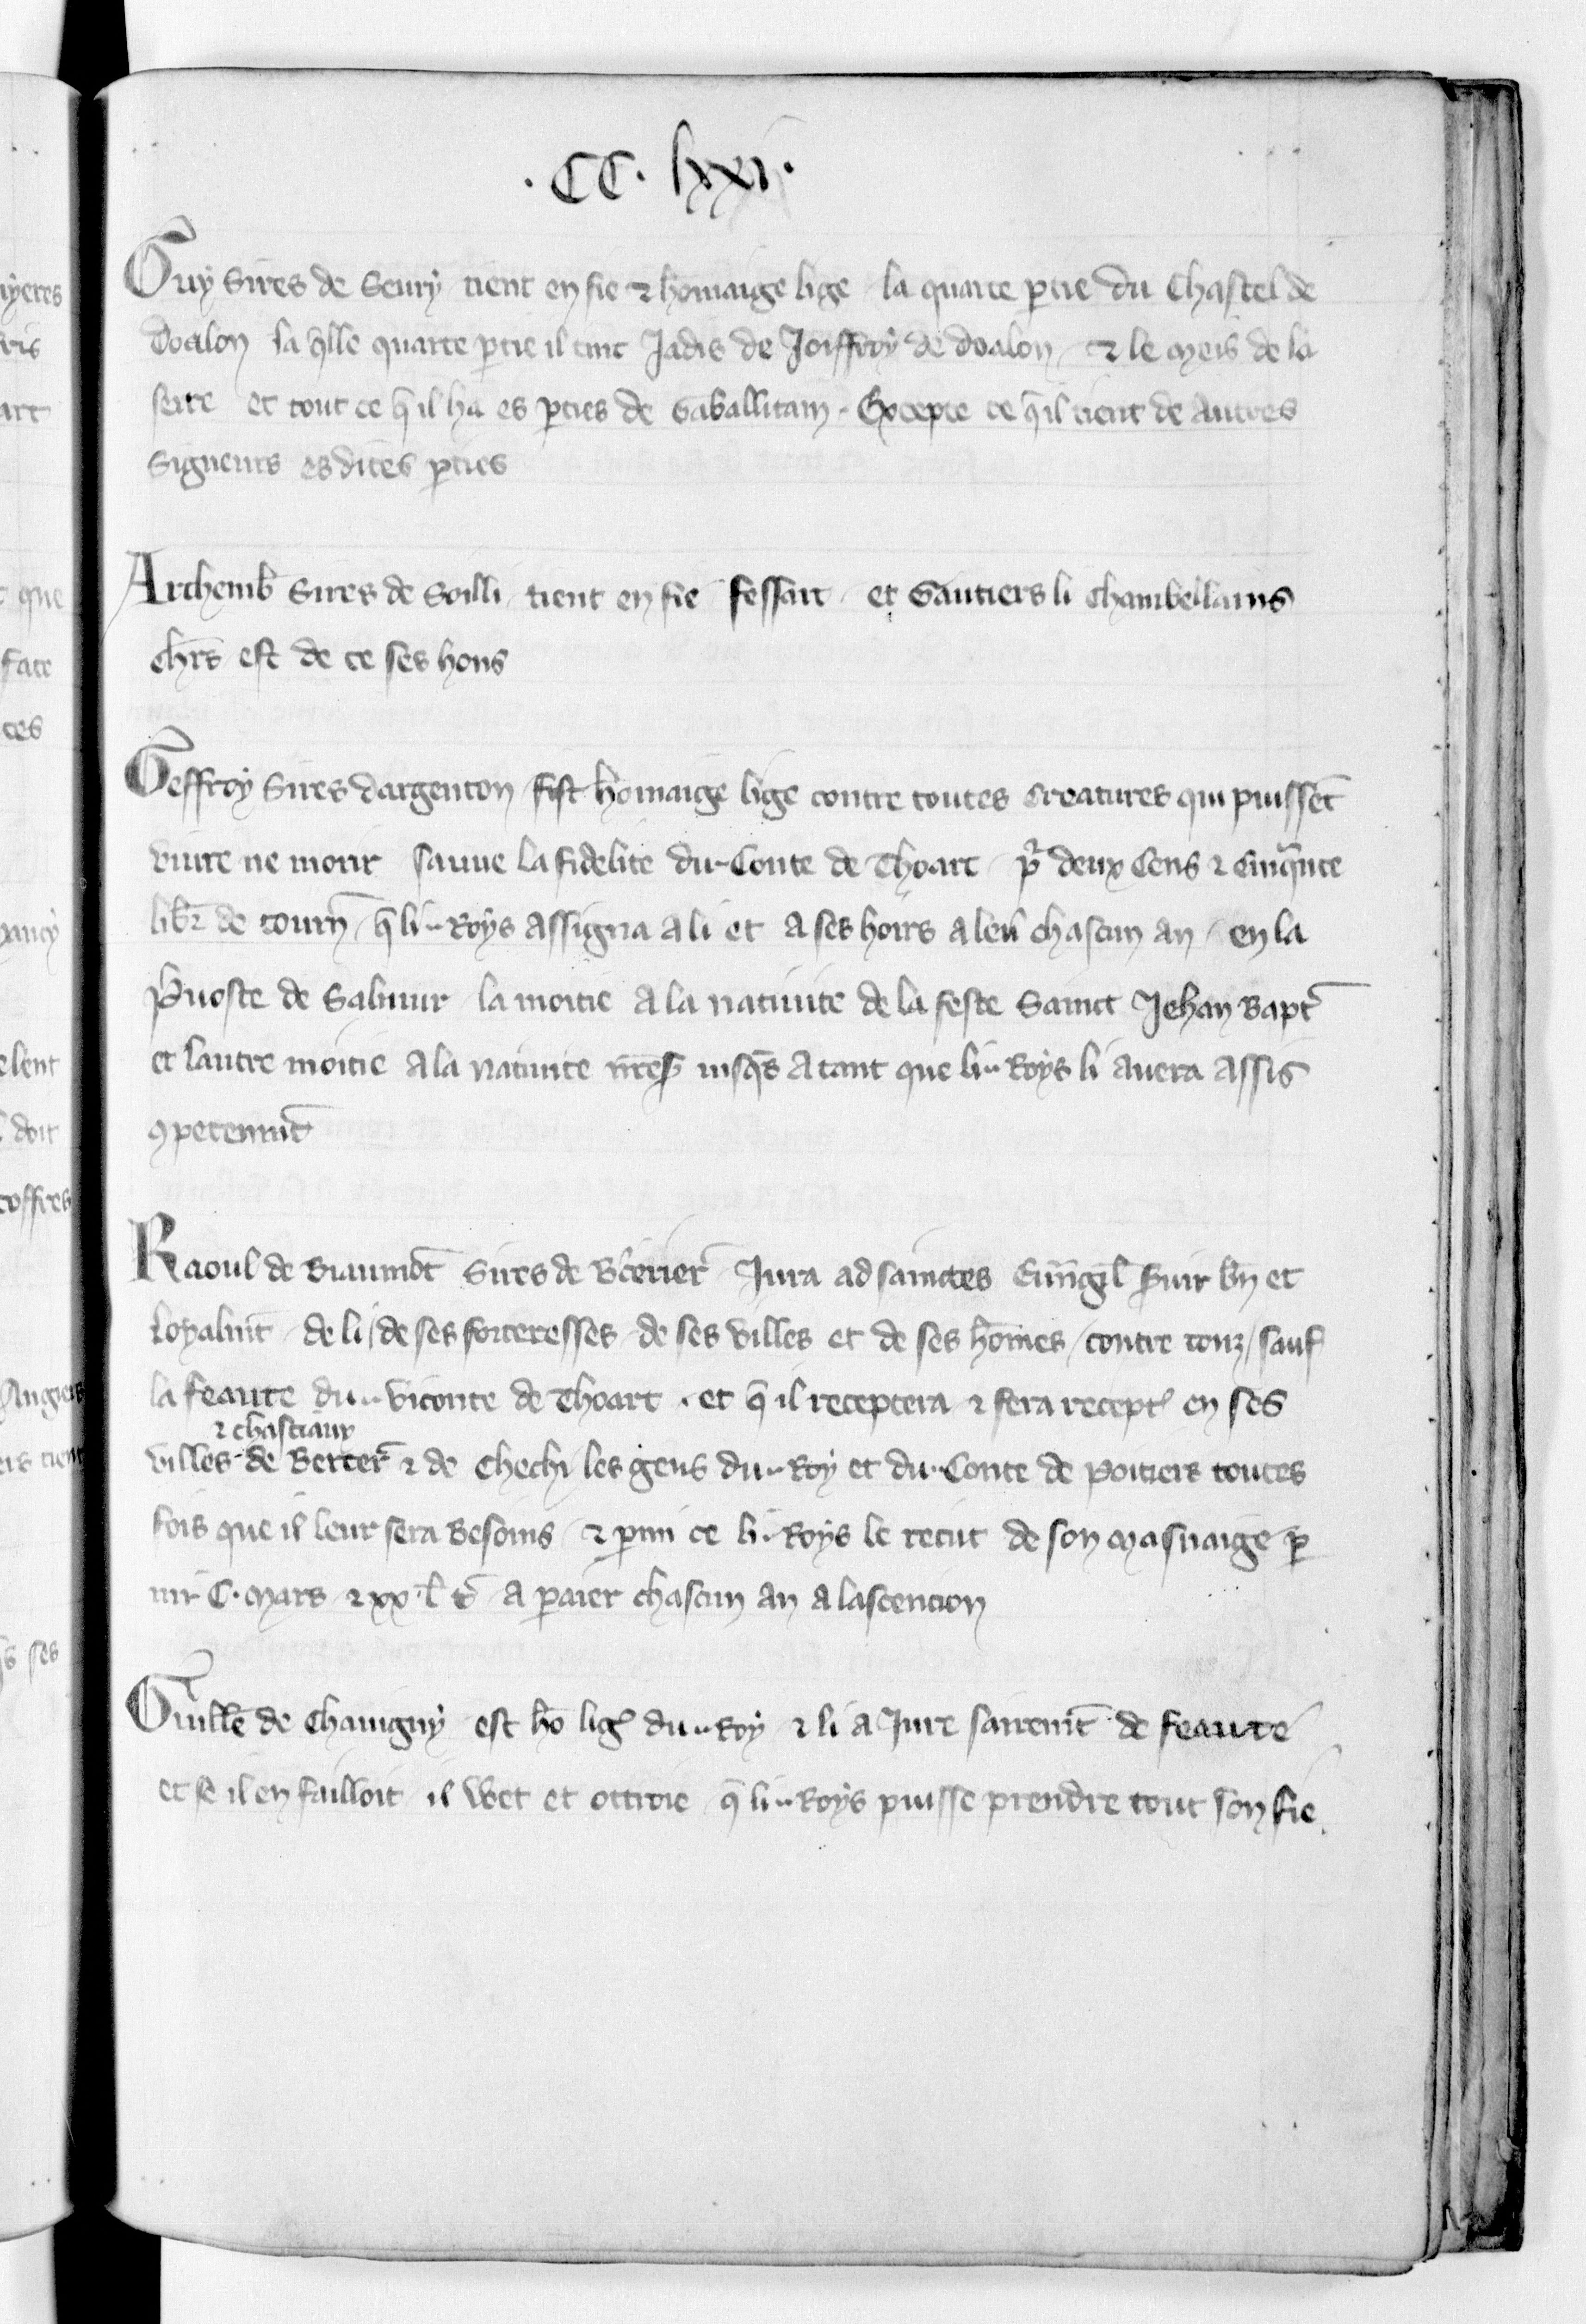 .CC. lxxi.
Guy Sires de Seury tient en fie & homaige lige la quarte ptie du Chastel de
Doalon la qlle quarte ptie il tint Jadis de Joiffroy de doalon & le meis de la
serre et tout ce q̃ il ha es pties de Gaballitain. Excepte ce q̃ il tient de Autres
Signeurs es dites pties
Archemb̃ Sires de Soilli tient en fie fessart et Gautiers li Chambellains
chrs̃ est de ce ses hons
Geffroy Sires dargenton fist homaige lige contre toutes Creatures qui puissẽt
viure ne morir sauue la fidelite du Conte de Thoart pr̃ deux Cens & Cinqñte
libr̃ de tourñ q̃ li Roys Assigna a li et a ses hoirs a leũ chascun an en la
Puoste de Salmur la moitie A la natiuite de la feste Sainct Jehan Bapt̃
et lautre moitie A la Natiuite nr̃e S iusqs̃ A tant que li Roys li auera Assis
ꝯpetenmt̃
Raoul de Biaumõt Sires de Bc̃erier̃ Jura ad sainctes Euuãgil̃ s̃uir bñ et
loyalmt̃ de li / de ses forteresses de ses villes et de ses hom̃es / contre touz / sauf
la feaute du viconte de Thoart . et q̃ il receptera & fera recept̃ en ses
& chastiaux
villes de Bercer̃ & de Chechi les gens du Roy et du Conte de Poitiers toutes
fois que il leur sera Besoins & pmi ce li Roys le recut de son masnaige p
iiii C. mars & xx l t̃ a paier chascun an a lascencion
Guillẽ de Chauigny est hõ lig̃ du Roy & li A Jure sairemt̃ de feaute
et se il en failloit il vvet et ottroie q̃ li Roys puisse prendre tout son fie.